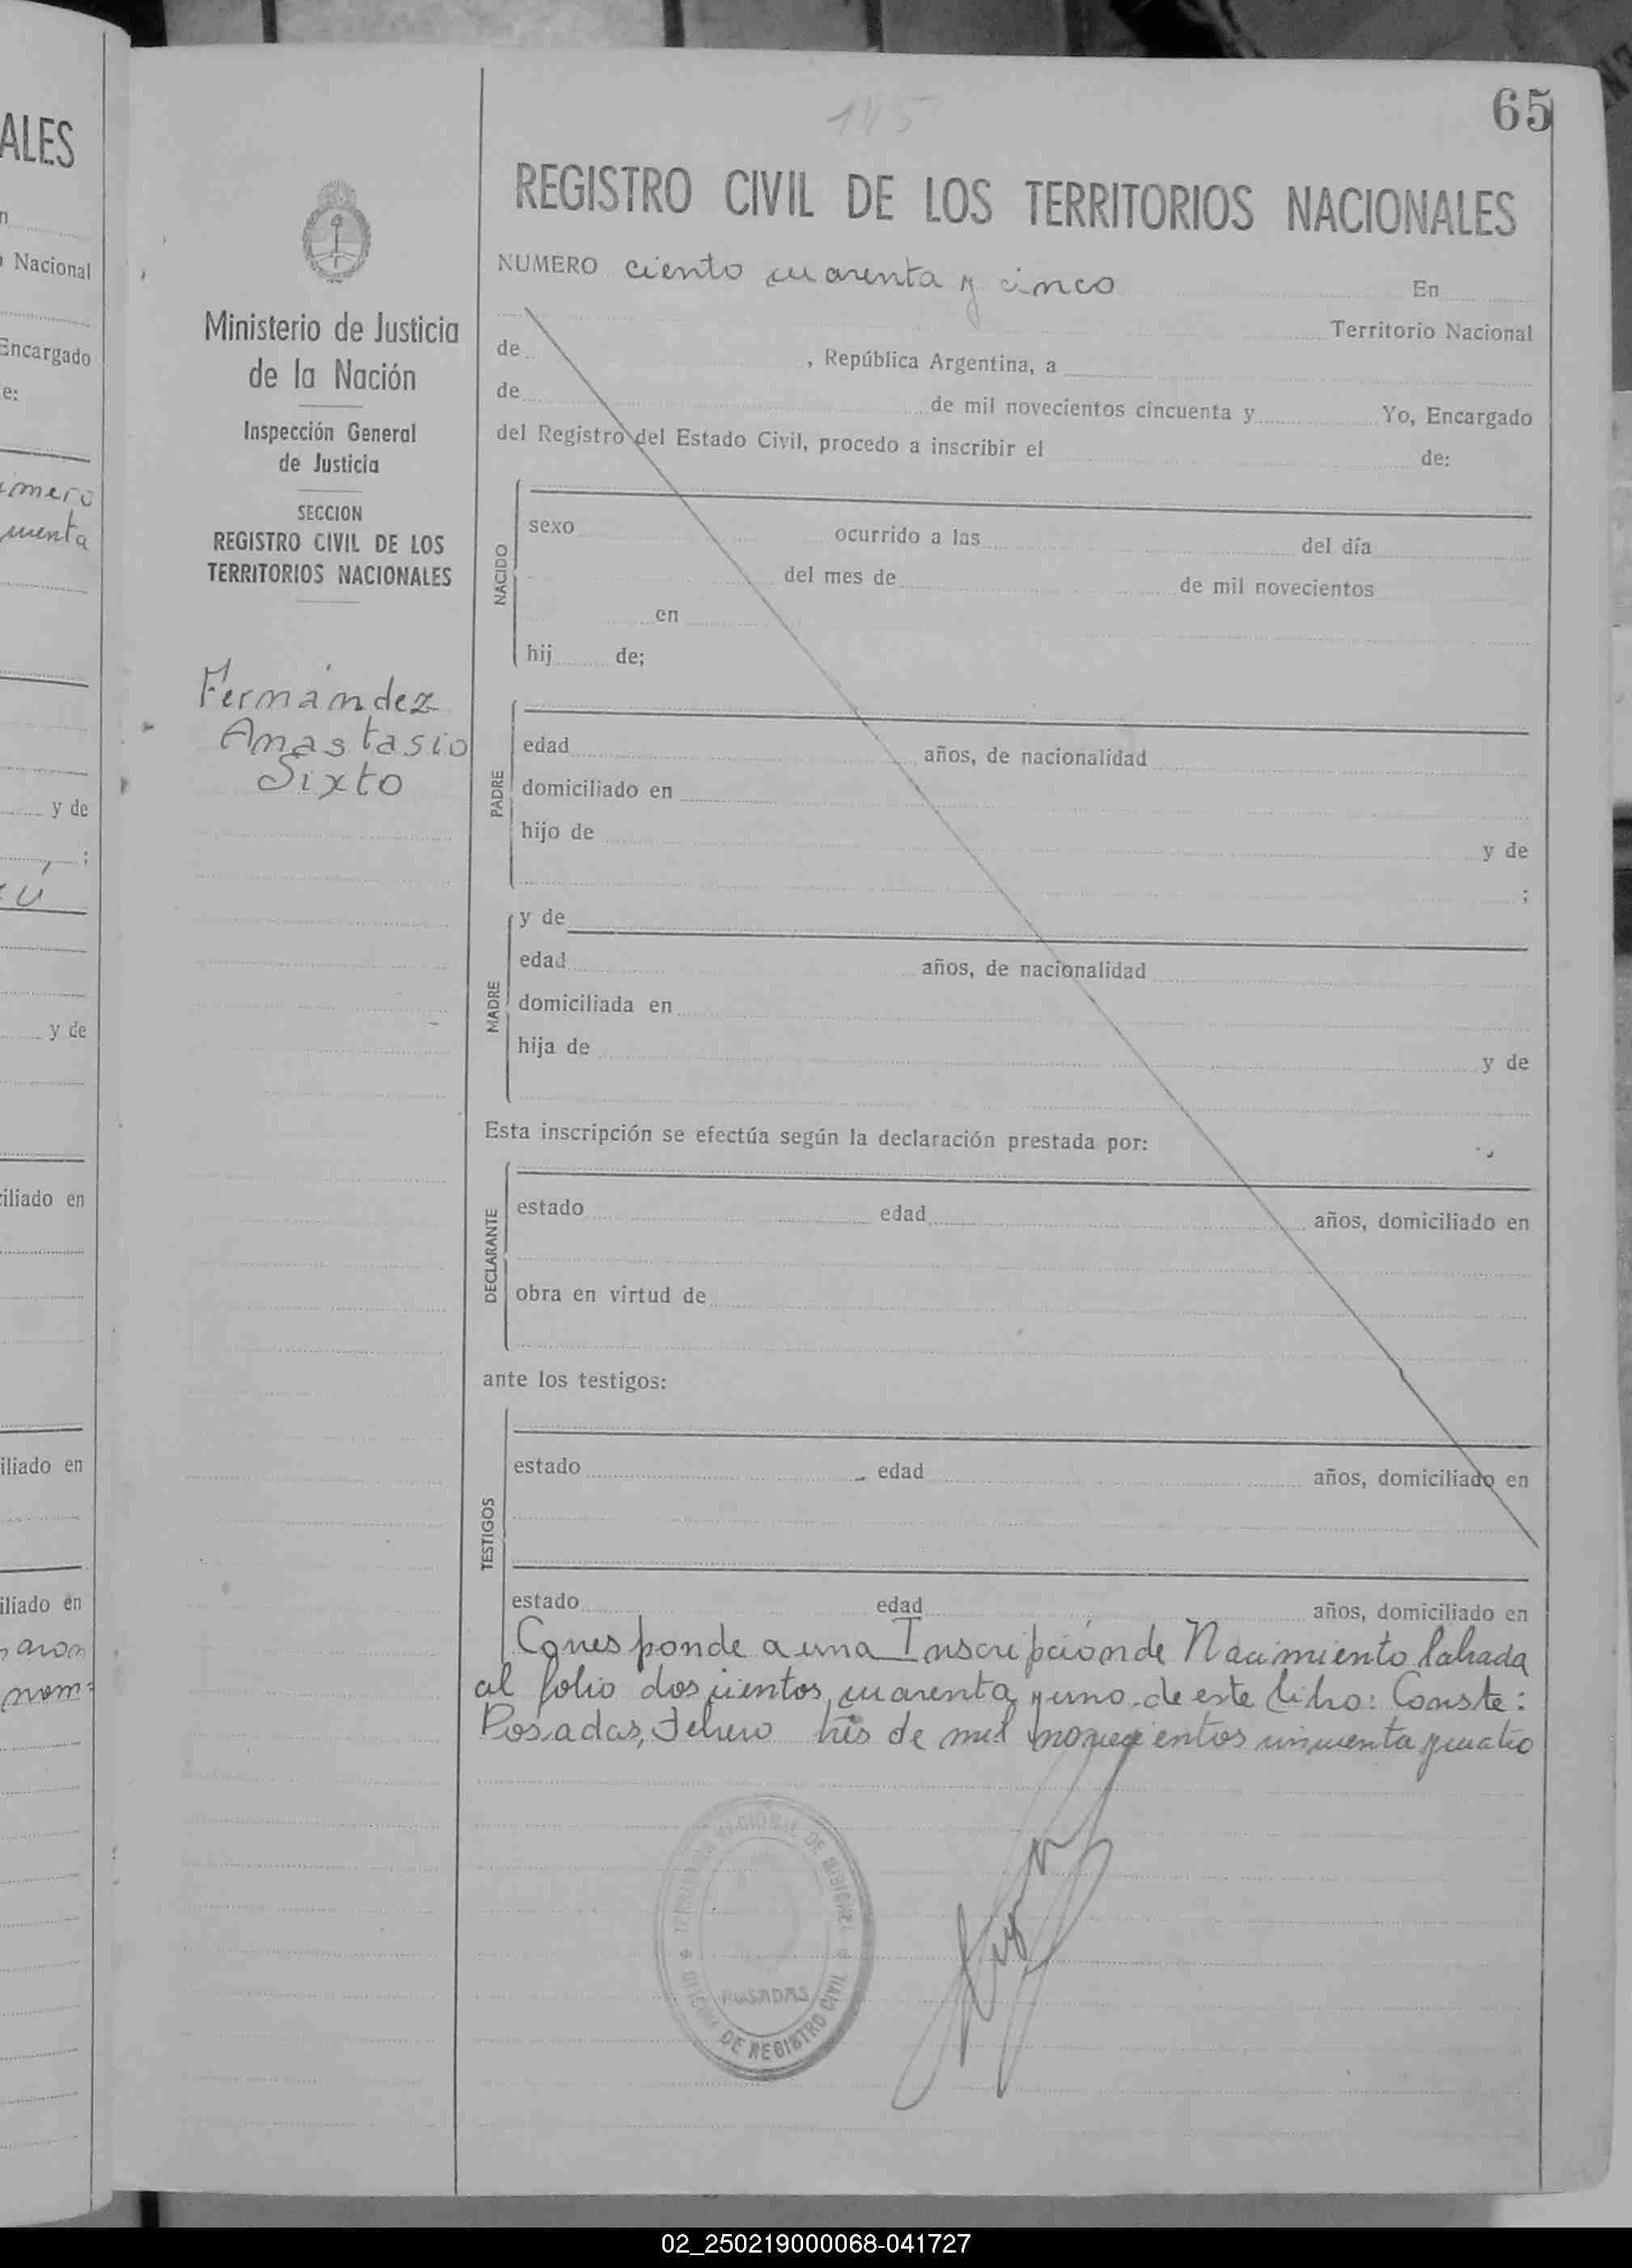 ALES
n
o Nacional
Encargado
e:
y de
;
y de
iliado en
iliado en
iliado en
nom=
145
65
REGISTRO CIVIL DE LOS TERRITORIOS NACIONALES
NUMERO ciento cuarenta y cinco En
Territorio Nacional
de , República Argentina, a
de de mil novecientos cincuenta y Yo, Encargado
del Registro del Estado Civil, procedo a inscribir el de:
Ministerio de Justicia
de la Nación
Inspección General
de Justicia
SECCION
REGISTRO CIVIL DE LOS
TERRITORIOS NACIONALES
Fernández
Anastasio
Sixto
NACIDO
sexo ocurrido a las del día
del mes de de mil novecientos
en
hij de;
PADRE
edad años, de nacionalidad
domiciliado en
hijo de y de
;
MADRE
y de
edad años, de nacionalidad
domiciliada en
hija de y de
Esta inscripción se efectúa según la declaración prestada por:
DECLARANTE
estado edad años, domiciliado en
obra en virtud de
ante los testigos:
TESTIGOS
estado edad años, domiciliado en
estado edad años, domiciliado en
Corresponde a una Inscripción de Nacimiento labrada
al folio doscientos cuarenta y uno de este libro: Conste:
Posadas, Febrero tres de mil novecientos cincuenta y cuatro
TERRITORIO NACIONAL DE MISIONES
POSADAS
OFICINA DE REGISTRO CIVIL
02_250219000068-041727